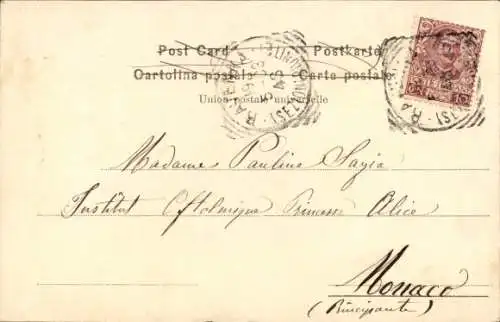 Post Card Postkarte
Cartolina postale Carte postale
Union postale universelle
Madame Paulina Sagia
Institut Oftolmique Princesse Alice
Monaco
(Principante)